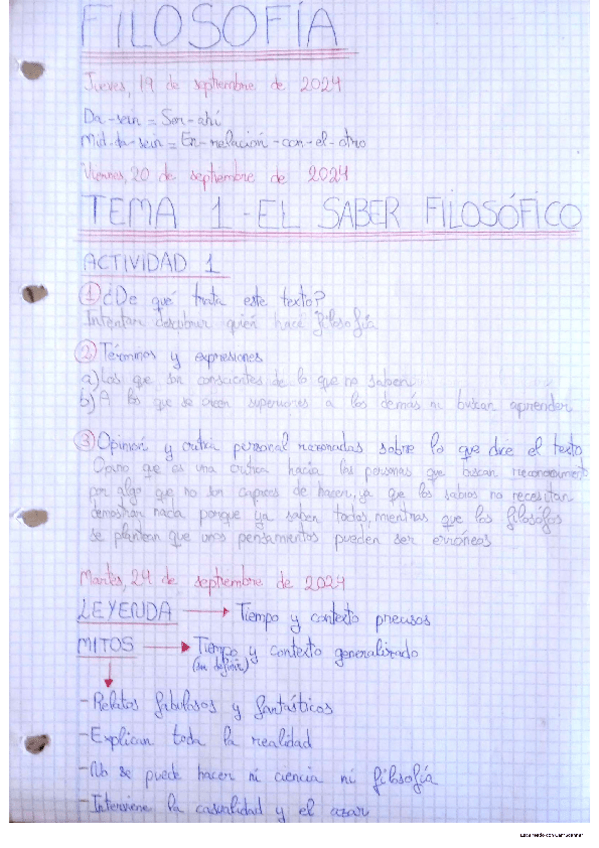 FILOSOFÍA
Jueves, 19 de septiembre de 2024
Da-sein = Ser-ahí
Mit-da-sein = En-relación-con-el-otro
Viernes, 20 de septiembre de 2024
TEMA 1-EL SABER FILOSÓFICO
ACTIVIDAD 1
① ¿De qué trata este texto?
Intentar descubrir quién hace filosofía
② Términos y expresiones
a) Los que son conscientes de lo que no saben
b) A los que se creen superiores a los demás ni buscan aprender
③ Opinión y crítica personal razonadas sobre lo que dice el texto
Opino que es una crítica hacia las personas que buscan reconocimiento
por algo que no son capaces de hacer, ya que los sabios no necesitan
demostrar nada porque ya saben todas, mientras que los filósofos
se plantean que unos pensamientos pueden ser erróneos
Martes, 24 de septiembre de 2024
LEYENDA → Tiempo y contexto precisos
MITOS → Tiempo y contexto generalizado
(sin definir)
-Relatos fabulosos y fantásticos
-Explican toda la realidad
-No se puede hacer ni ciencia ni filosofía
-Interviene la casualidad y el azar